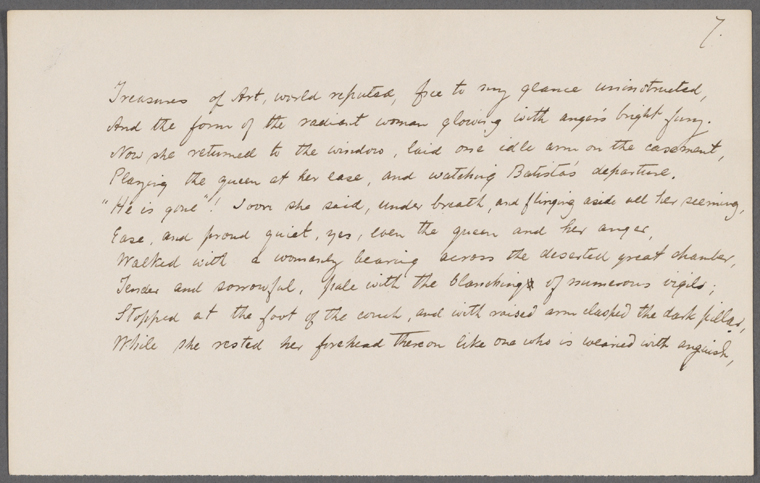 7.
Treasures of Art, world reputed, free to my glance uninstructed,
And the form of the radiant woman glowing with anger's bright fury.
Now she returned to the window, laid one idle arm on the casement,
Playing the queen at her ease, and watching Batista's departure.
"He is gone"! Soon she said, under breath, and flinging aside all her seeming,
Ease, and proud quiet, yes, even the queen and her anger,
Walked with a womanly bearing across the deserted great chamber,
Tender and sorrowful, pale with the blanching of numerous vigils;
Stopped at the foot of the couch, and with raised arm clasped the dark pillar,
While she rested her forehead thereon like one who is wearied with anguish,